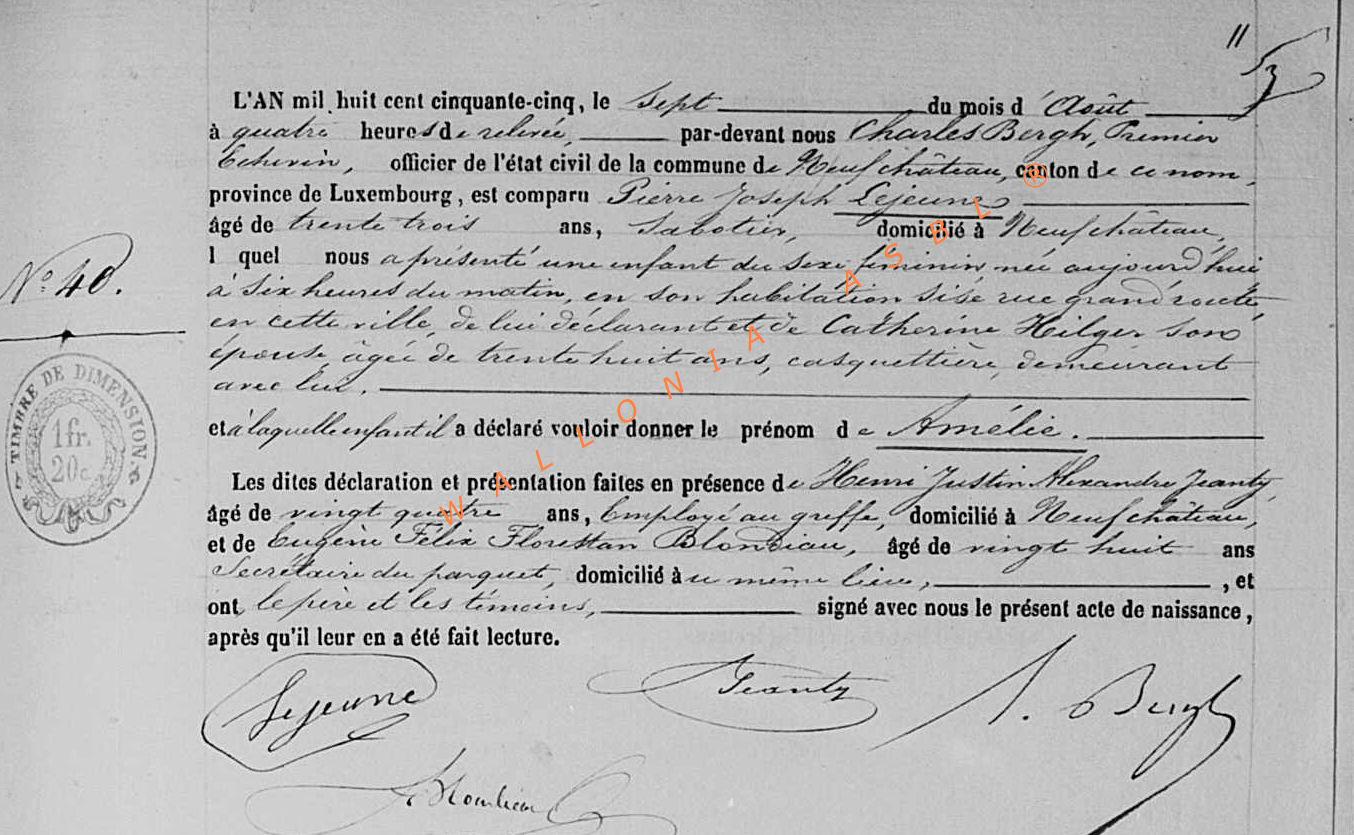 11
L'AN mil huit cent cinquante-cinq, le Sept du mois d'Août
à quatre heures de relevée, par-devant nous Charles Bergh, Premier
Echevin, officier de l'état civil de la commune de Neufchâteau, canton de ce nom,
province de Luxembourg, est comparu Pierre Joseph Lejeune
âgé de trente trois ans, Sabotier, domicilié à Neufchâteau,
l quel nous a présenté une enfant du sexe féminin, née aujourd'hui
à six heures du matin, en son habitation sise rue grand'route,
en cette ville, de lui déclarant et de Catherine Hilger son
épouse, âgée de trente huit ans, casquettière, demeurant
avec lui.
et à laquelle enfant il a déclaré vouloir donner le prénom de Amélie.
Les dites déclaration et présentation faites en présence de Henri Justin Alexandre Jeanty,
âgé de vingt quatre ans, Employé au greffe, domicilié à Neufchâteau,
et de Eugène Félix Florestan Blondiau, âgé de vingt huit ans
Secrétaire du parquet, domicilié à u même lieu, , et
ont, le père et les témoins, signé avec nous le présent acte de naissance,
après qu'il leur en a été fait lecture.
N° 40.
TIMBRE DE DIMENSION
1 fr.
20 c.
WALLONIA ASBL ®
Lejeune
Jeanty
Bergh